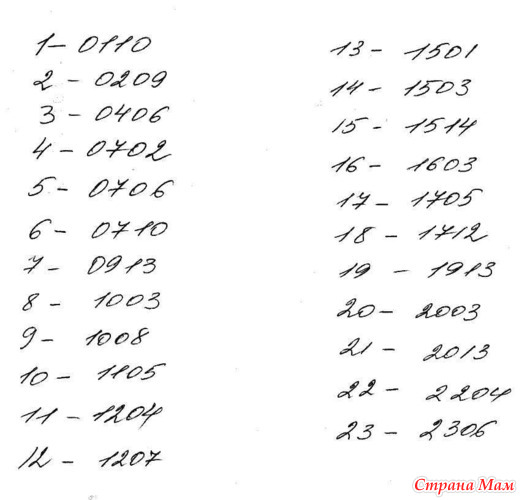 1 - 0110
2 - 0209
3 - 0406
4 - 0702
5 - 0706
6 - 0710
7 - 0913
8 - 1003
9 - 1008
10 - 1105
11 - 1204
12 - 1207
13 - 1501
14 - 1503
15 - 1514
16 - 1603
17 - 1705
18 - 1712
19 - 1913
20 - 2003
21 - 2013
22 - 2204
23 - 2306
Страна Мам